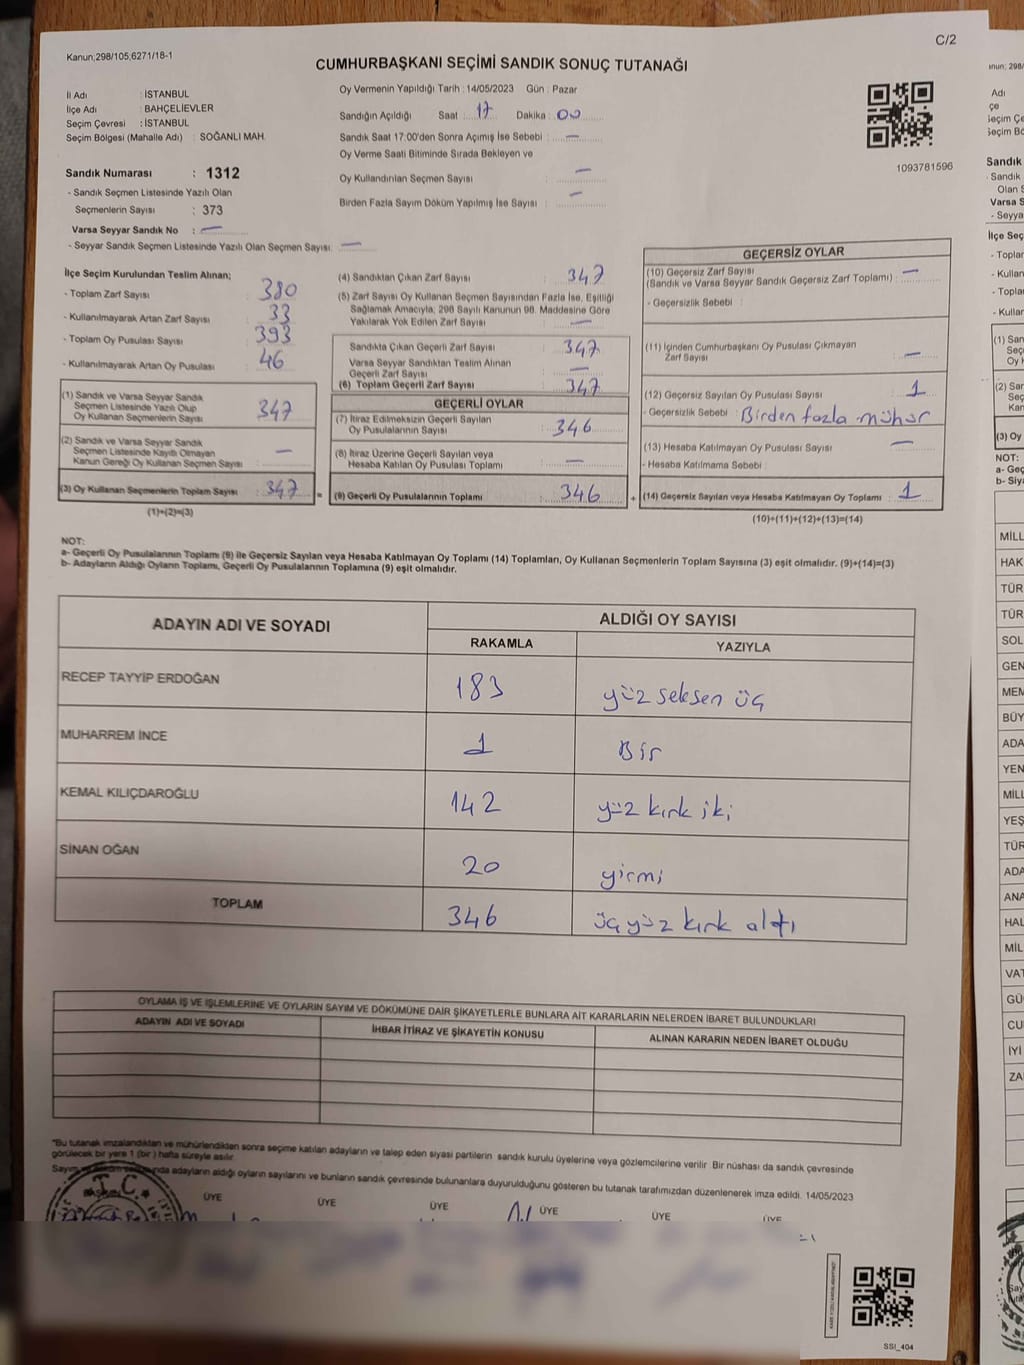 C/2
Kanun;298/105;6271/18-1
CUMHURBAŞKANI SEÇİMİ SANDIK SONUÇ TUTANAĞI
İl Adı : İSTANBUL
İlçe Adı : BAHÇELİEVLER
Seçim Çevresi : İSTANBUL
Seçim Bölgesi (Mahalle Adı) : SOĞANLI MAH.
Sandık Numarası : 1312
- Sandık Seçmen Listesinde Yazılı Olan
Seçmenlerin Sayısı : 373
Varsa Seyyar Sandık No : —
- Seyyar Sandık Seçmen Listesinde Yazılı Olan Seçmen Sayısı: —
Oy Vermenin Yapıldığı Tarih : 14/05/2023 Gün : Pazar
Sandığın Açıldığı Saat : 17 Dakika : 00
Sandık Saat 17:00'den Sonra Açımış İse Sebebi : —
Oy Verme Saati Bitiminde Sırada Bekleyen ve
Oy Kullandırılan Seçmen Sayısı : —
Birden Fazla Sayım Döküm Yapılmış İse Sayısı : —
1093781596
İlçe Seçim Kurulundan Teslim Alınan;
- Toplam Zarf Sayısı : 380
- Kullanılmayarak Artan Zarf Sayısı : 33
- Toplam Oy Pusulası Sayısı : 393
- Kullanılmayarak Artan Oy Pusulası : 46
(1) Sandık ve Varsa Seyyar Sandık
Seçmen Listesinde Yazılı Olup
Oy Kullanan Seçmenlerin Sayısı : 347
(2) Sandık ve Varsa Seyyar Sandık
Seçmen Listesinde Kayıtlı Olmayan
Kanun Gereği Oy Kullanan Seçmen Sayısı : —
(3) Oy Kullanan Seçmenlerin Toplam Sayısı : 347 =
(1)+(2)=(3)
(4) Sandıktan Çıkan Zarf Sayısı : 347
(5) Zarf Sayısı Oy Kullanan Seçmen Sayısından Fazla İse, Eşitliği
Sağlamak Amacıyla; 298 Sayılı Kanunun 98. Maddesine Göre
Yakılarak Yok Edilen Zarf Sayısı : —
Sandıkta Çıkan Geçerli Zarf Sayısı : 347
Varsa Seyyar Sandıktan Teslim Alınan
Geçerli Zarf Sayısı : —
(6) Toplam Geçerli Zarf Sayısı : 347
GEÇERLİ OYLAR
(7) İtiraz Edilmeksizin Geçerli Sayılan
Oy Pusulalarının Sayısı : 346
(8) İtiraz Üzerine Geçerli Sayılan veya
Hesaba Katılan Oy Pusulası Toplamı : —
(9) Geçerli Oy Pusulalarının Toplamı : 346 +
GEÇERSİZ OYLAR
(10) Geçersiz Zarf Sayısı
(Sandık ve Varsa Seyyar Sandık Geçersiz Zarf Toplamı) : —
- Geçersizlik Sebebi :
(11) İçinden Cumhurbaşkanı Oy Pusulası Çıkmayan
Zarf Sayısı : —
(12) Geçersiz Sayılan Oy Pusulası Sayısı : 1
- Geçersizlik Sebebi : Birden fazla mühür
(13) Hesaba Katılmayan Oy Pusulası Sayısı : —
- Hesaba Katılmama Sebebi :
(14) Geçersiz Sayılan veya Hesaba Katılmayan Oy Toplamı : 1
(10)+(11)+(12)+(13)=(14)
NOT:
a- Geçerli Oy Pusulalarının Toplamı (9) ile Geçersiz Sayılan veya Hesaba Katılmayan Oy Toplamı (14) Toplamları, Oy Kullanan Seçmenlerin Toplam Sayısına (3) eşit olmalıdır. (9)+(14)=(3)
b- Adayların Aldığı Oyların Toplamı, Geçerli Oy Pusulalarının Toplamına (9) eşit olmalıdır.
ADAYIN ADI VE SOYADI ALDIĞI OY SAYISI
RAKAMLA YAZIYLA
RECEP TAYYİP ERDOĞAN 183 yüz seksen üç
MUHARREM İNCE 1 Bir
KEMAL KILIÇDAROĞLU 142 yüz kırk iki
SİNAN OĞAN 20 yirmi
TOPLAM 346 üç yüz kırk altı
OYLAMA İŞ VE İŞLEMLERİNE VE OYLARIN SAYIM VE DÖKÜMÜNE DAİR ŞİKAYETLERLE BUNLARA AİT KARARLARIN NELERDEN İBARET BULUNDUKLARI
ADAYIN ADI VE SOYADI İHBAR İTİRAZ VE ŞİKAYETİN KONUSU ALINAN KARARIN NEDEN İBARET OLDUĞU
"Bu tutanak imzalandıktan ve mühürlendikten sonra seçime katılan adayların ve talep eden siyasi partilerin sandık kurulu üyelerine veya gözlemcilerine verilir. Bir nüshası da sandık çevresinde
görülecek bir yere 1 (bir) hafta süreyle asılır.
adayların aldığı oyların sayılarını ve bunların sandık çevresinde bulunanlara duyurulduğunu gösteren bu tutanak tarafımızdan düzenlenerek imza edildi. 14/05/2023
T.C.
ÜYE ÜYE ÜYE ÜYE ÜYE ÜYE
SSI_404
Adı
Sandık
- Sandık
Olan S
Varsa S
- Seyya
İlçe Seç
- Toplar
- Kullan
- Topla
- Kullar
(1) San
Seç
Oy
(2) Sar
Seç
Kan
(3) Oy
NOT:
a- Geç
b- Siya
MİLL
HAK
TÜR
TÜR
SOL
GEN
MEM
BÜY
ADA
YEN
MİLL
YEŞ
TÜR
ADA
ANA
HAL
MİL
VAT
GÜ
CU
İYİ
ZA